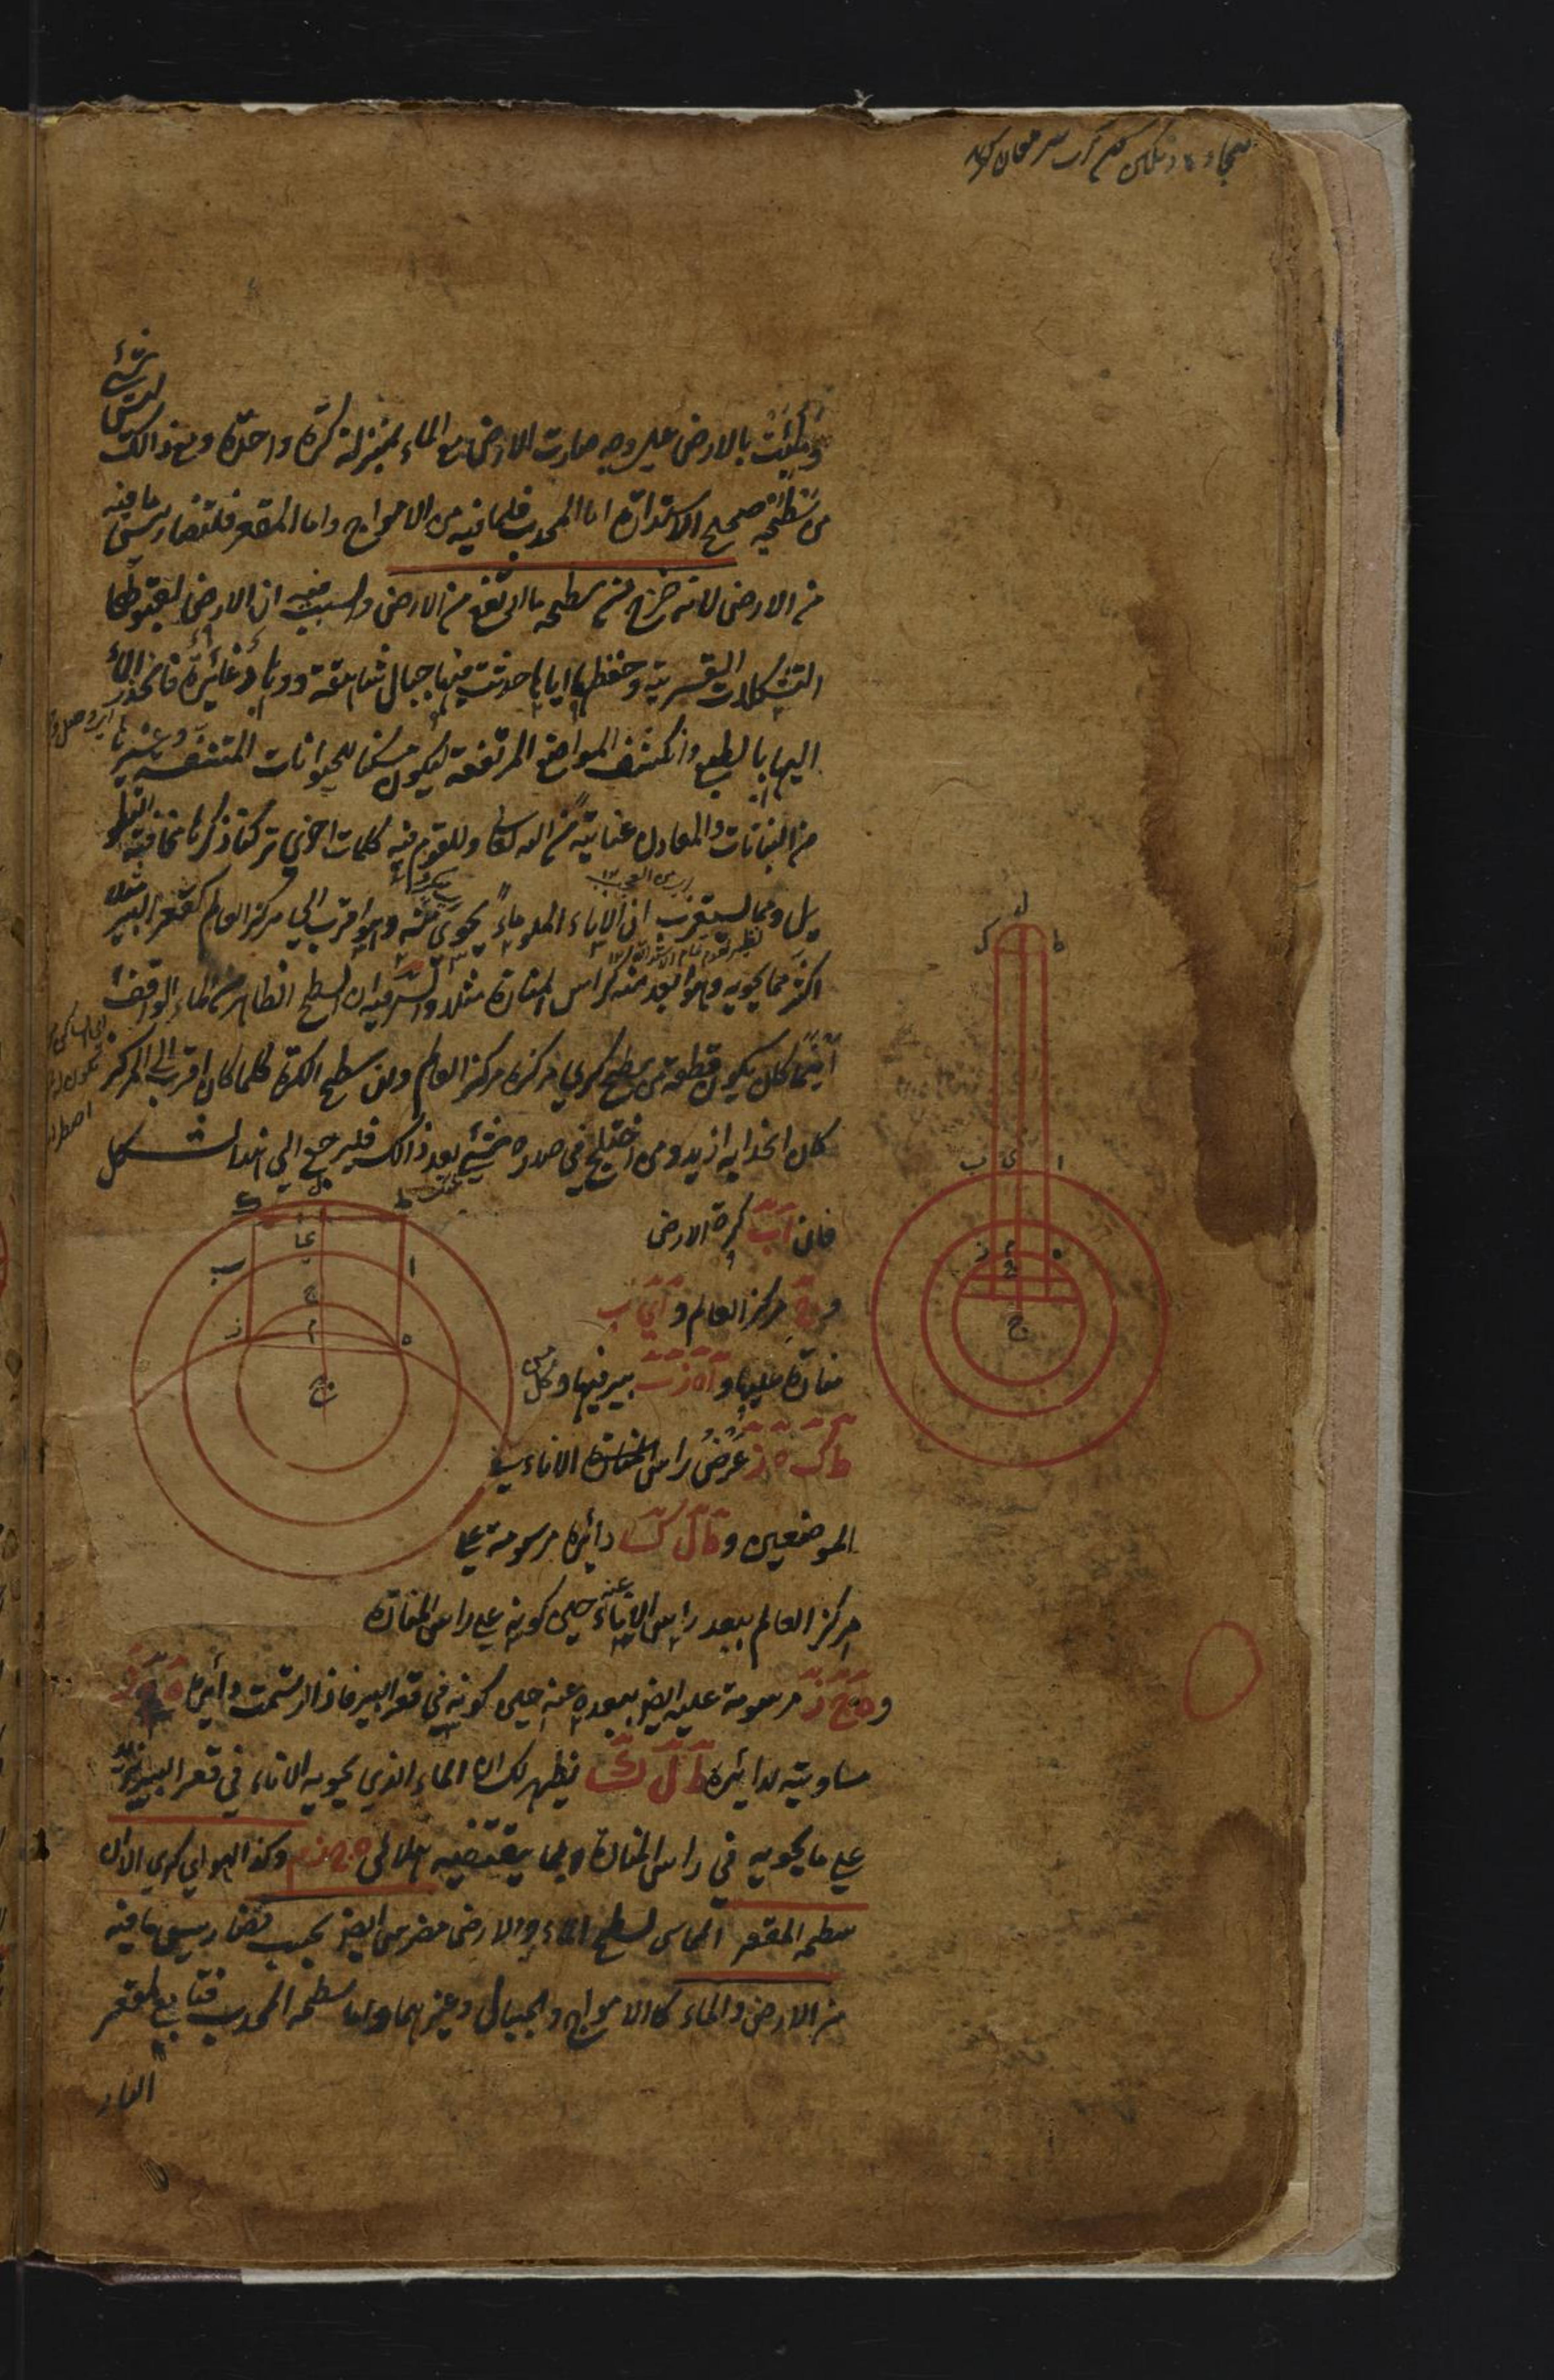 وطئت بالارض على وجه صارت الارض مع الماء بمنزلة كرة واحدة ومع ذالك ليس شيئ
من سطحيه صحيح الاستدارة اما المحدب فلما فيه من الامواج واما المقعر فلتضاريس ما فيه
من الارض لانه خرج من سطحه ما ارتفع من الارض والسبب فيه ان الارض لقبولها
التشكلات القسرية وحفظها اياها حدثت فيها جبال شاهقة ووهاد غائرة فانحدر الماء
اليها بالطبع وانكشف المواضع المرتفعة ليكون مسكنا للحيوانات المتنفسة وغيرها
من النباتات والمعادن عناية من الله تعالى وللقوم فيه كلمات اخرى تركنا ذكرها مخافة التطو
يل ومما يستغرب ان الاناء المملو ماء يحوي منه وهو اقرب الى مركز العالم كقعر البير مثلا
اكثر مما يحويه وهو ابعد منه كراس المنارة مثلا والسر فيه ان السطح الظاهر من الماء الواقف
اينما كان يكون قطعة من سطح كري مركزه مركز العالم وان سطح الكرة كلما كان اقرب الى المركز
كان انحدابه ازيد ومن اختلج في صدره شيئ بعد ذالك فليرجع الى هذا الشكل
فان اب كرة الارض
و ج مركز العالم و اي ب
منارة عليها و اه ز ب بير فيها وكل من
ط ك ه ز عرض راس الاناء في
الموضعين و ط ل ك دائرة مرسومة على
مركز العالم ببعد راس الاناء عنه حين كونه على راس المنارة
و ه ح ز مرسومة عليه ايضا ببعده عنه حين كونه في قعر البير فاذا رسمت دائرة ه م ز
مساوية لدائرة ط ل ك يظهر لك ان الماء الذي يحويه الاناء في قعر البير يزيد
على ما يحويه في راس المنارة بما يقتضيه هلالي ه ح ز م وكذا الهواء كري الا ان
سطحه المقعر المماس لسطح الماء والارض مضرس ايضا بحسب تضاريس ما فيه
من الارض والماء كالامواج والجبال وغيرهما واما سطحه المحدب فتابع لمقعر
النار
ل
ك ط
ب ي ا
ز م ه
ح
ج
ك ل ط
ب ا
ح
ز م ه
ج